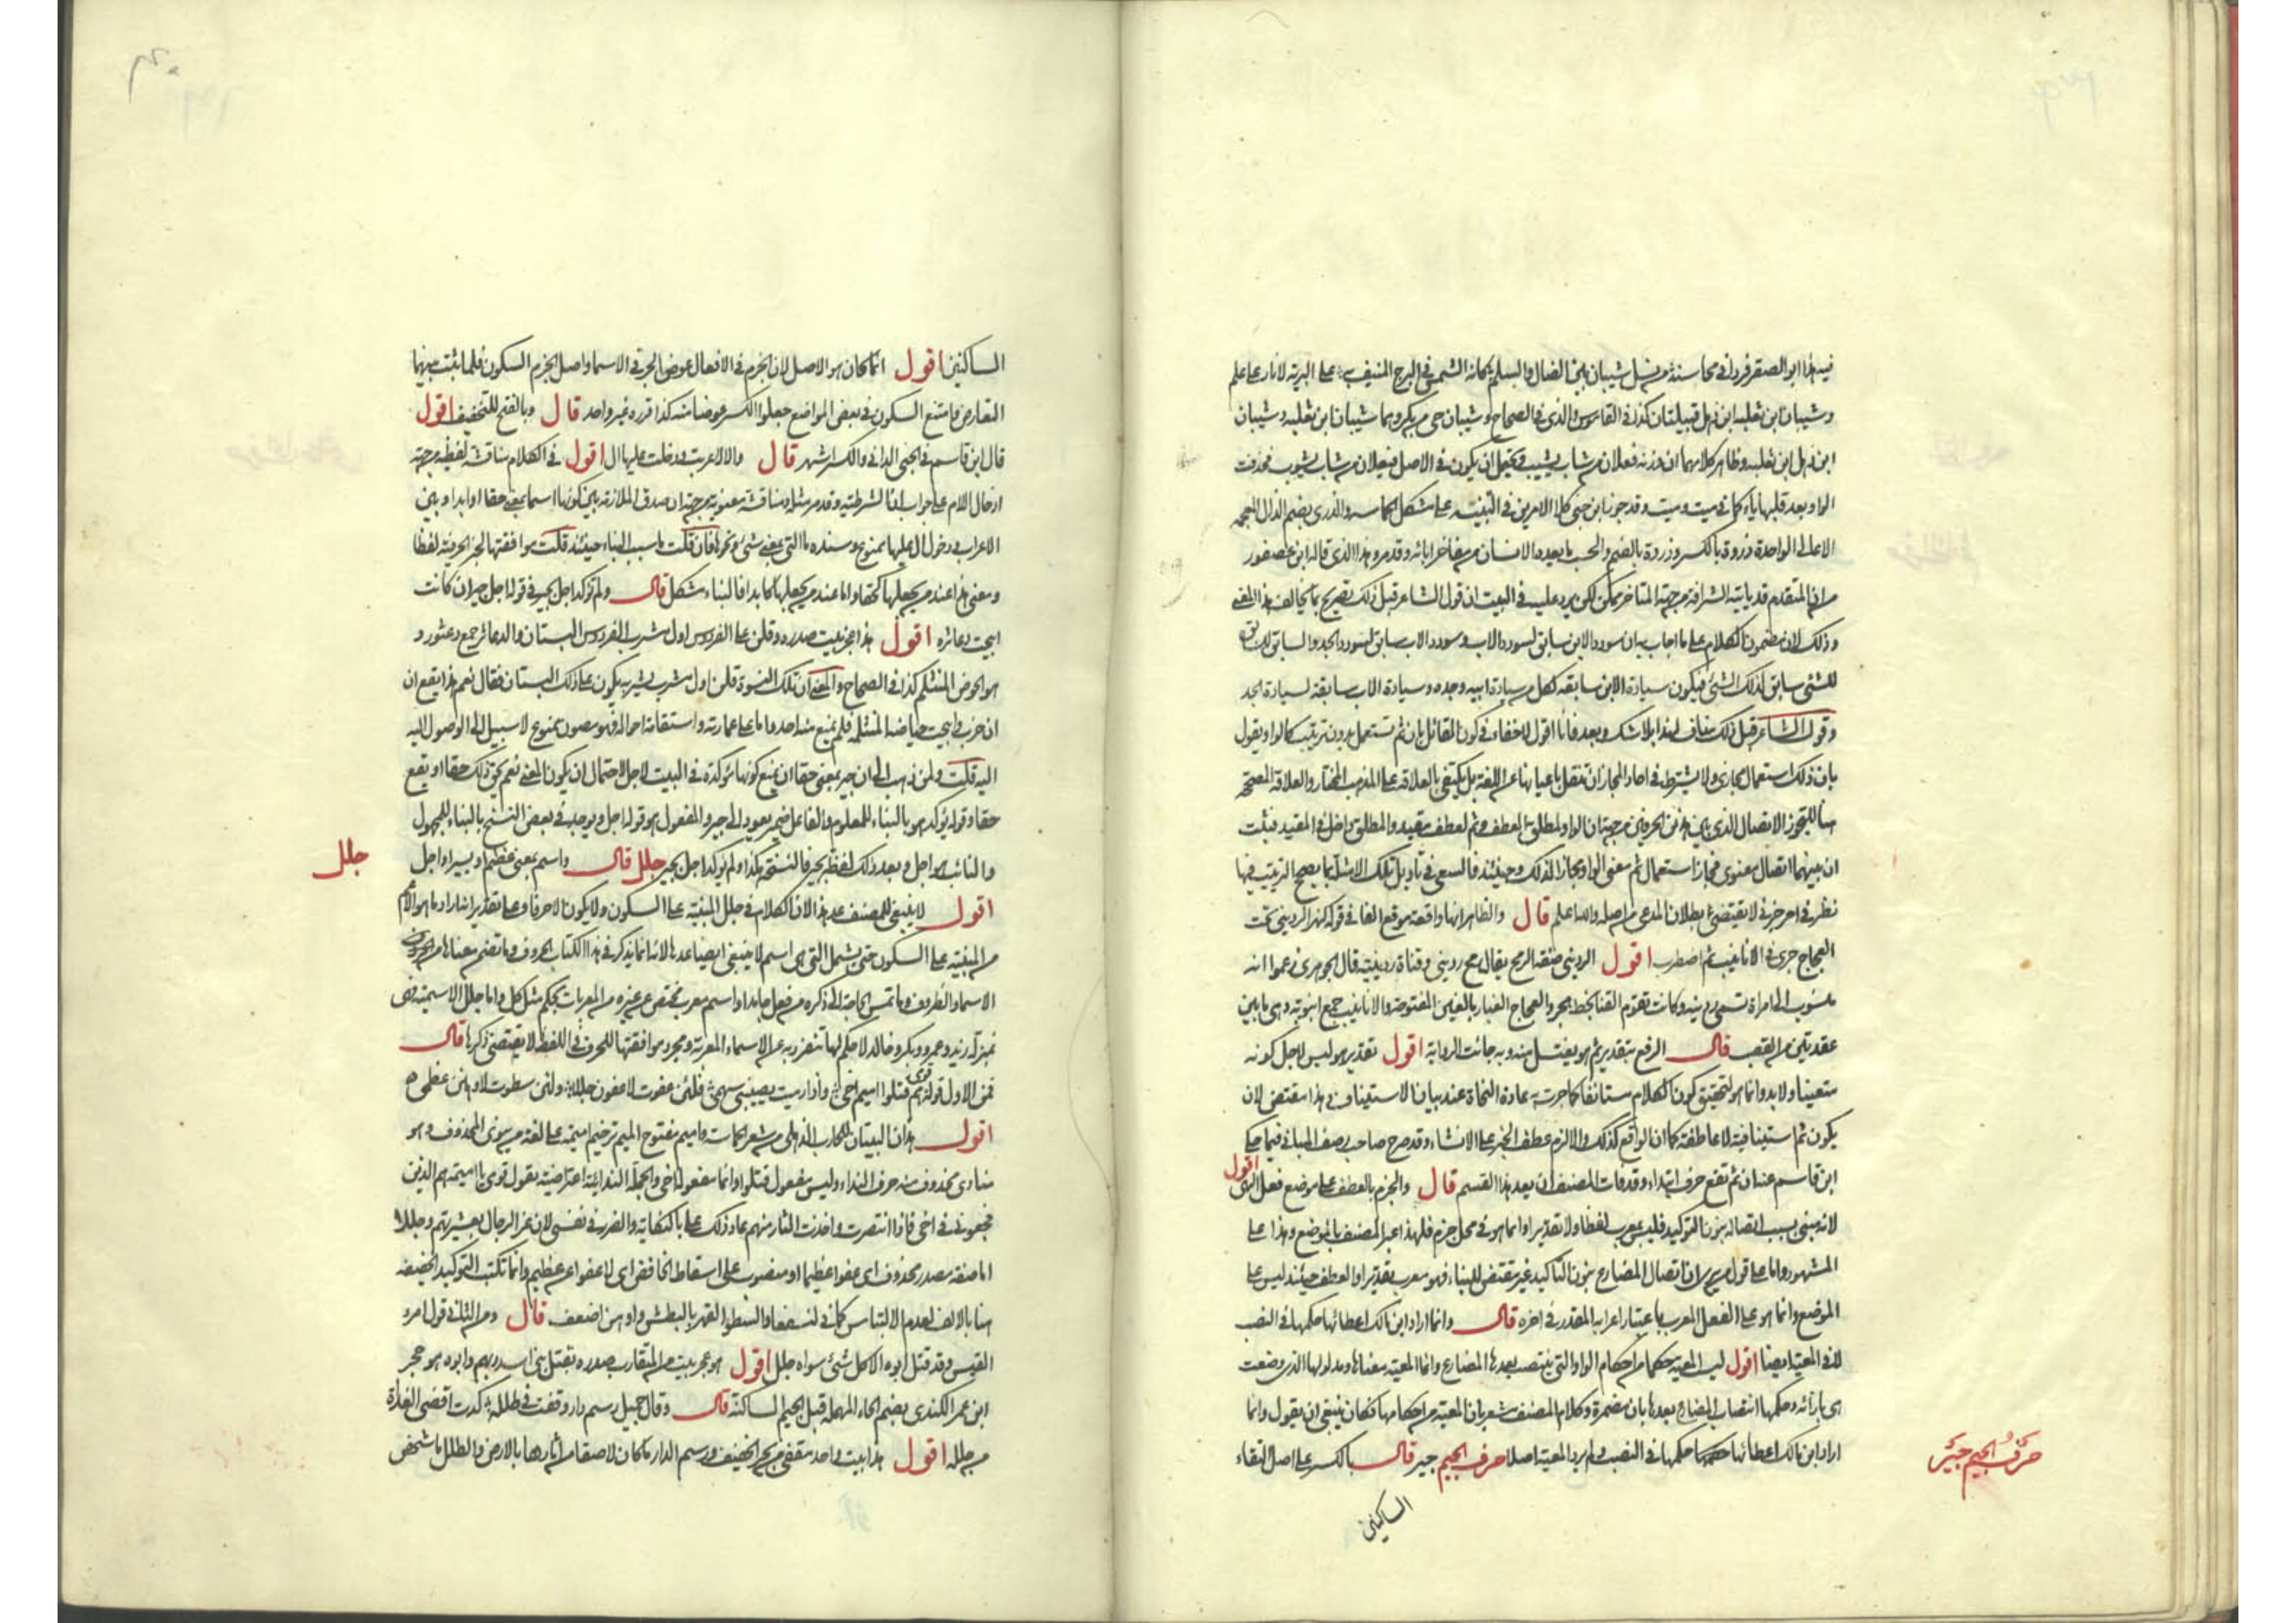 فيه هذا ابو الصقر فردا في محاسنه من نسل شيبان بين الضال والسلم كانه الشمس في البرج المنيف به على البرية لا نار على علم
وشيبان ابن ثعلبه ابن ذهل قبيلتان كذا في القاموس والذي في الصحاح وشيبان حي من بكر وهما شيبان ابن ثعلبه وشيبان
ابن ذهل ابن ثعلبه وظاهر كلامهما ان وزنه فعلان من شاب يشيب فيحتمل ان يكون في الاصل فيعلان من شاب يشوب فحذفت
الواو بعد قلبها ياء كما في ميت وميت وقد جوز ابن جني كلا الامرين في التبنيه على مشكل الحماسه والذرى بضم الذال المعجمه
الاعالي الواحدة ذروة بالكسر وذروة بالضم والحسب ما يعده الانسان من مفاخر ابائه وقد مر وهذا الذي قاله ابن عصفور
من ان المتقدم قد ياتيه الشرافة من جهة المتاخر ممكن لكن يرد عليه في البيت ان قول الشاعر قبل ذلك تصريح بما يخالف هذا المعنى
وذلك لان مضمون الكلام على ما اجاب به ان سودد الابن سابق لسودد الاب وسودد الاب سابق لسودد الجد والسابق للسابق
للشئ سابق لذلك الشئ فيكون سيادة الابن سابقه لكل من سيادة ابيه وجده وسيادة الاب سابقة لسيادة الجد
وقول الشاعر قبل ذلك مناف لهذا بلا شك وبعد فانا اقول لا خفاء في كون القائل بان ثم تستعمل بدون ترتيب كالواو يقول
بان ذلك استعمال مجازي ولا يشترط في احاد المجاز ان تنقل باعيانها عن اللغة بل يكتفى بالعلاقة على المذهب المختار والعلاقة المصححة
هنا للتجوز الاتصال الذي بين هذين الحرفين من جهة ان الواو لمطلق العطف وثم لعطف مقيد والمطلق داخل في المقيد فثبت
ان بينهما اتصال معنوى فجاز استعمال ثم بمعنى الواو مجازا لذلك وحينئذ فالسعي في تاويل تلك الامثلة بما يصحح الترتيب فيها
نظر في امر جزئي لا يقتضي بطلان المدعى من اصله والله اعلم قال والظاهر انها واقعة موقع الفا في قوله كهز الرديني تحت
العجاج جرى في الانابيب ثم اضطرب اقول الرديني صفة الرمح يقال رمح رديني وقناة ردينية قال الجوهري زعموا انه
منسوب الى امراة تسمى ردينه وكانت تقوم القنا بخط هجر والعجاج الغبار بالغين المفتوحة والانابيب جمع انبوبة وهي ما بين
عقدتين من القصب قال الرفع بتقدير ثم هو يغتسل منه وبه جائت الرواية اقول تقدير هو ليس لاجل كونه
متعينا ولا بد وانما هو لتحقيق كون الكلام مستانفا كما جرت به عادة النحاة عند بيان الاستيناف هذا مقتضى لان
يكون ثم استينافية لا عاطفة كما ان الواقع كذلك والا لزم عطف الخبر على الانشاء وقد صرح صاحب رصف المباني فيما حكى
ابن قاسم عنه ان ثم تقع حرف ابتداء وقد فات المصنف ان يعد هذا القسم قال والجزم بالعطف على موضع فعل النهي اقول
لانه مبني بسبب اتصاله بنون التوكيد فليس بمعرب لفظا ولا تقديرا وانما هو في محل جزم فلهذا عبر المصنف بالموضع وهذا على
المشهور واما على قول من يرى ان اتصال المضارع بنون التاكيد غير مقتض للبناء فهو معرب تقديرا والعطف حينئذ ليس على
الموضع وانما هو على الفعل المعرب باعتبار اعرابه المقدر في اخره قال وانما اراد ابن مالك اعطائها حكمها في النصب
لا في المعية ايضا اقول ليس المعية حكما من احكام الواو التي ينتصب بعدها المضارع وانما المعية معناها ومدلولها الذي وضعت
هي بازائه وحكمها انتصاب المضارع بعدها بان مضمرة وكلام المصنف مشعر بان المعية من احكامها فكان ينبغي ان يقول وانما
اراد ابن مالك اعطائها حكمها في النصب ولم يرد المعية اصلا حرف الجيم جير قال بالكسر على اصل التقاء
حَرْفُ الجيم جَيْرِ
الساكنين
الساكنين اقول انما كان هو الاصل لان الجزم في الافعال عوض الجر في الاسما واصل الجزم السكون فلما ثبت بينهما
التعارض وامتنع السكون في بعض المواضع جعلوا الكسر عوضا منه كذا قرره غير واحد قال وبالفتح للتخفيف اقول
قال ابن قاسم في الجنى الداني والكسر اشهر قال والا لاعربت ودخلت عليها ال اقول في الكلام مناقشة لفظية من جهة
ادخال اللام على جواب ان الشرطية وقد مر مثله ومناقشة معنوية من جهة ان صدق الملازمة بين كونها اسما بمعنى حقا او ابدا وبين
الاعراب ودخول ال عليها ممنوع وسنده ما التي بمعنى شئ ونحوها فان قلت ما سبب البناء حينئذ قلت موافقتها لجير الحرفية لفظا
ومعنى هذا عند من يجعلها كحقا واما عند من يجعلها كابدا فالبناء مشكل قال ولم تؤكد اجل بجير في قوله اجل جير ان كانت
ابيحت دعاثره اقول هذا عجز بيت صدره وقلن على الفردوس اول مشرب الفردوس البستان والدعاثر جمع دعثور و
هو الحوض المنثلم كذا في الصحاح والمعنى ان تلك النسوة قلن اول مشرب نشربه يكون على ذلك البستان فقال نعم هذا يقع ان
ان خرب وابيحت حياضه المنثلمة فلم يمنع منه احد واما على عمارته واستقامة احواله فهو مصون ممنوع لا سبيل الى الوصول اليه
اليه قلت ولمن ذهب الى ان جير بمعنى حقا ان يمنع كونها مؤكدة في البيت لاجل لاحتمال ان يكون المعنى نعم يحق ذلك حقا او يقع
حقا وقوله يؤكد هو بالبناء للمعلوم والفاعل ضمير يعود الى جير والمفعول هو قوله اجل ويوجد في بعض النسخ بالبناء للمجهول
والنائب هو اجل وبعد ذلك لفظ بجير فالنسخة هكذا ولم يؤكد اجل بجير جلل قال واسم بمعنى عظيم او يسير او اجل
جلل
اقول لا ينبغي للمصنف عد هذا لان الكلام في جلل المبنية على السكون ولا يكون الا حرفا وعلى تقدير
من المبنية على السكون حتى يشمل التي هي اسم لا ينبغي ايضا عدها لانه انما يذكر في هذا الكتاب الحروف وما تضمن معناها من
الاسما والظروف وما تمس الحاجة الى ذكره من فعل جامد او اسم معرب يختص عن غيره من المعربات بحكم مثل كل واما جلل الاسمية فهى
بمنزلة زيد وعمرو وبكر وخالد لا حكم لها تنفرد به عن الاسماء المعربة ومجرد موافقتها للحرف في اللفظ لا يقتضي ذكرها قال
فمن الاول قوله قومي هم قتلوا اميم اخي واذا رميت يصيبني سهمي فلئن عفوت لاعفون جللا ولئن سطوت لاوهنن عظمي
اقول هذان البيتان للحارث الذهلي من شعر الحماسة واميم مفتوح الميم ترخيم اميمة على لغة من ينوي المحذوف وهو
منادى محذوف منه حرف النداء وليس مفعول قتلوا وانما مفعوله اخي والجملة الندائية اعتراضية يقول قومي يا اميمة هم الذين
فجعوني في اخي فاذا انتصرت واخذت الثار منهم عاد ذلك على بالنكاية والضرر في نفسي لان عز الرجال بعشيرتهم وجللا
اما صفة مصدر محذوف اى عفوا عظيما او منصوب على اسقاط الخافض اى لاعفو عن عظيم وانما تكتب التوكيد الخفيفة
هنا بالالف لعدم الالتباس كما في لنسفعا والسطو القهر بالبطش واوهن اضعف قال ومن الثاني قول امرء
القيس وقد قتل ابوه الا كل شئ سواه جلل اقول هو عجز بيت من المتقارب صدره بقتل بني اسد ربهم وابوه هو حجر
ابن عمر الكندي بضم الحاء المهملة قبل الجيم الساكنة قال وقال جميل رسم دار وقفت في طلله كدت اقضى الغداة
من جلله اقول هذا بيت واحد مقفى من بحر الخفيف ورسم الدار ما كان لاصقا من اثارها بالارض والطلل ما شخص